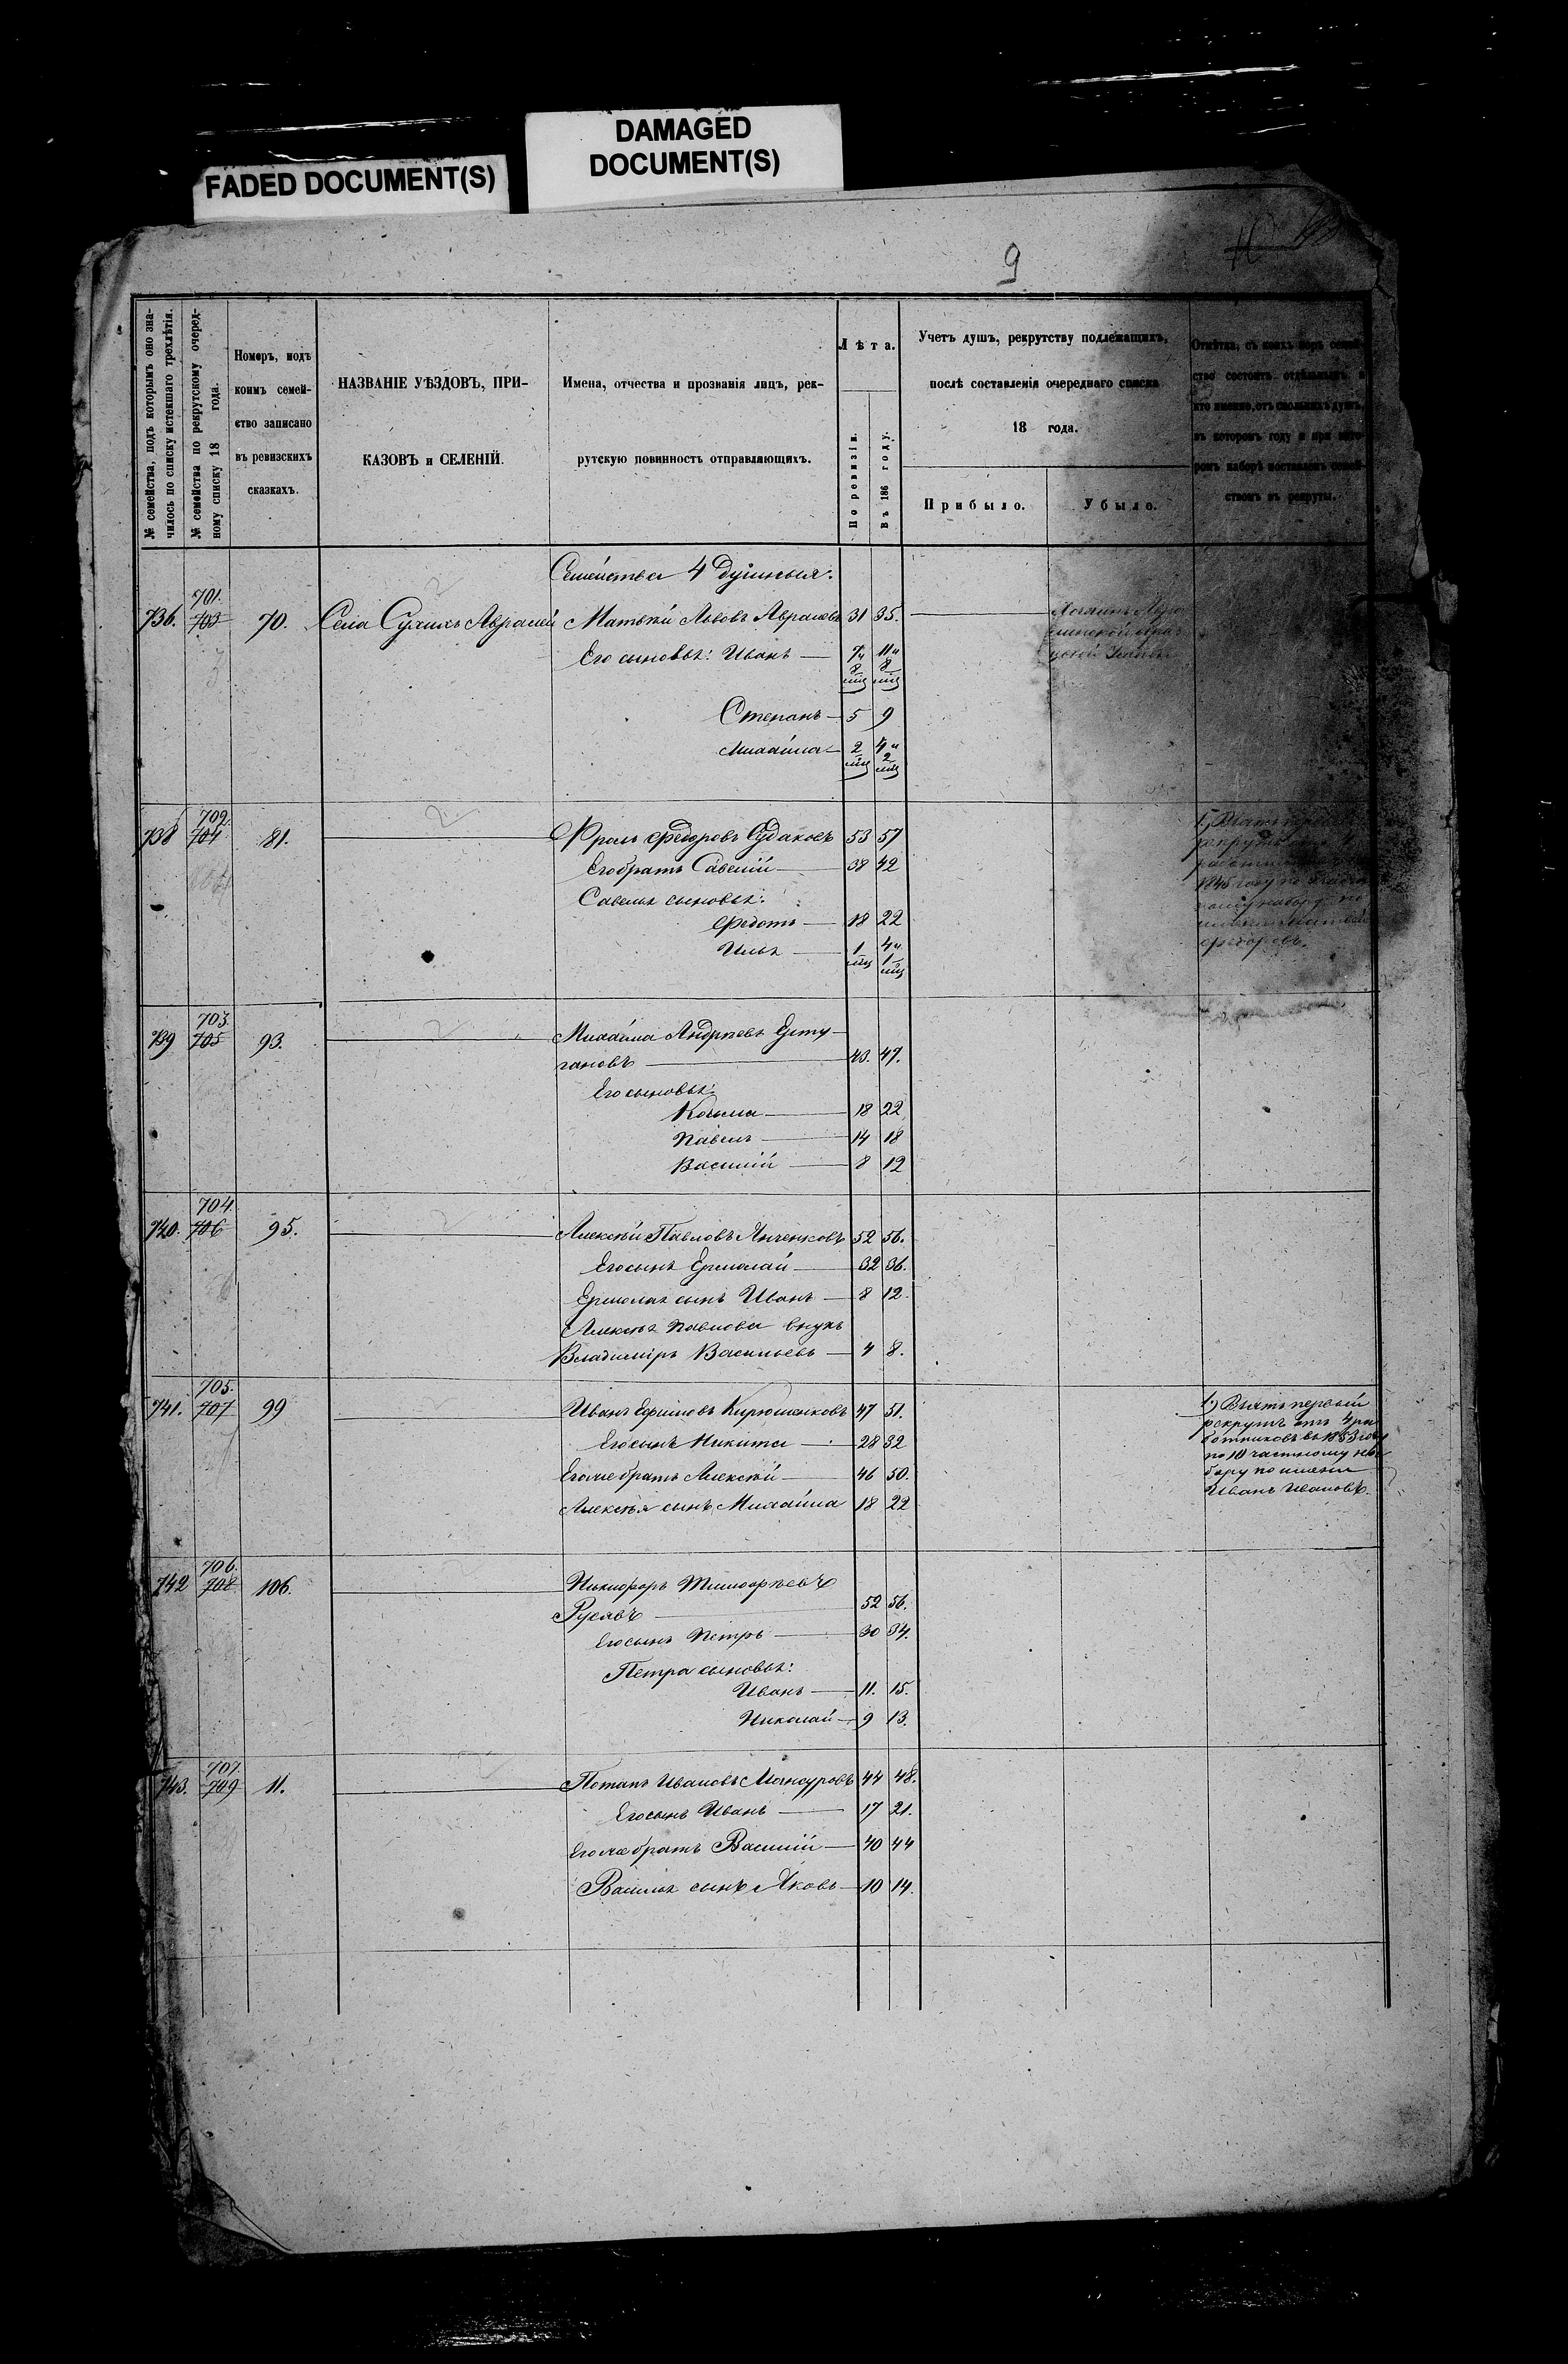 FADED DOCUMENT(S)
DAMAGED
DOCUMENT(S)
9
№ семейства, подъ которымъ оно зна-
чилось по списку истекшаго трехлѣтія.
№ семейства по рекрутскому очеред-
ному списку 18 года.
Номеръ, подъ
коимъ семей-
ство записано
въ ревизскихъ
сказкахъ.
НАЗВАНІЕ УѢЗДОВЪ, ПРИ-
КАЗОВЪ и СЕЛЕНІЙ.
Имена, отчества и прозванія лицъ, рек-
рутскую повинность отправляющихъ.
Лѣта.
По ревизіи.
Въ 186 году.
Учетъ душъ, рекрутству подлежащихъ,
послѣ составленія очереднаго списка
18 года.
Прибыло.
Убыло.
Отмѣтка, съ коихъ поръ семей-
ство состоитъ отдѣльнымъ, и
кто именно, отъ сколькихъ душъ,
въ которомъ году и при кото-
ромъ наборѣ поставленъ семей-
ствомъ въ рекруты.
Семейства 4 душныя.
701.
736. 703 70. Села Сухихъ Авралей Матвѣй Львовъ 31 35.
Его сыновья: Иванъ 7 8 мц 11 8 мц
Степанъ 5 9
Михайла 2 мц 4 2 мц
702.
738 704 81. Фролъ Федоровъ Судаковъ 53 57
Его братъ Савелій 38 42
Савелья сыновья:
Федотъ 18 22
Илья 1 мц 4 1 мц
1845 году по
Федоровъ.
703.
739 705 93. Михайла Андреевъ
гановъ 43. 47.
Его сыновья:
Козьма 18 22
Павелъ 14 18
Василій 8 12
704.
740. 706 95. Алексѣй Павловъ Янченковъ 52 56.
Его сынъ Ермолай 32 36.
Ермолая сынъ Иванъ 8 12.
Алексѣя Павлова внукъ
Владиміръ Васильевъ 4 8.
705.
741. 707 99 Иванъ Ефимовъ Кирюшенковъ 47 51.
Его сынъ Никита 28 32
Его же братъ Алексѣй 46 50.
Алексѣя сынъ Михайла 18 22
1.) Взятъ первый
рекрутъ отъ 4 ра
ботниковъ въ 1853 году
по 10 частному на
бору по имени
Иванъ Ивановъ.
706.
742 708 106. Никифоръ Тимофѣевъ
52 56.
Его сынъ Петръ 30 34.
Петра сыновья:
Иванъ 11. 15.
Николай 9 13.
707.
743. 709 11. Потапъ Ивановъ Мансуровъ 44 48.
Его сынъ Иванъ 17 21.
Его же братъ Василій 40 44
Василья сынъ Яковъ 10 14.